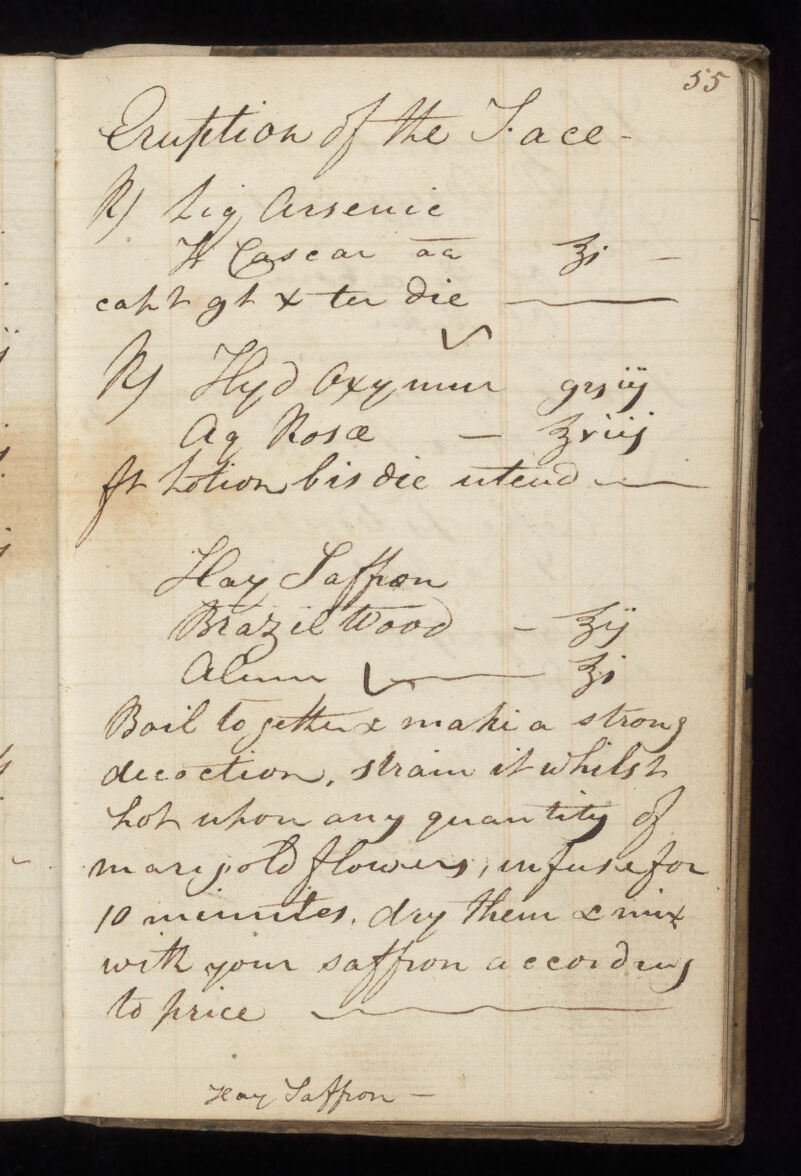 55
Eruption of the Face -
R) Liq Arsenic
Tr Cascar aa ʒi -
capt gt x ter die
R) Hyd Oxymur grs iij
Aq Rosæ - ʒviij
ft Lotion bis die utend
Hay Saffron
Brazil Wood - ʒij
Alum ʒi
Boil together & make a strong
decoction, strain it whilst
hot upon any quantity of
marigold flowers, infuse for
10 minutes. dry them & mix
with your saffron according
to price
Hay Saffron -